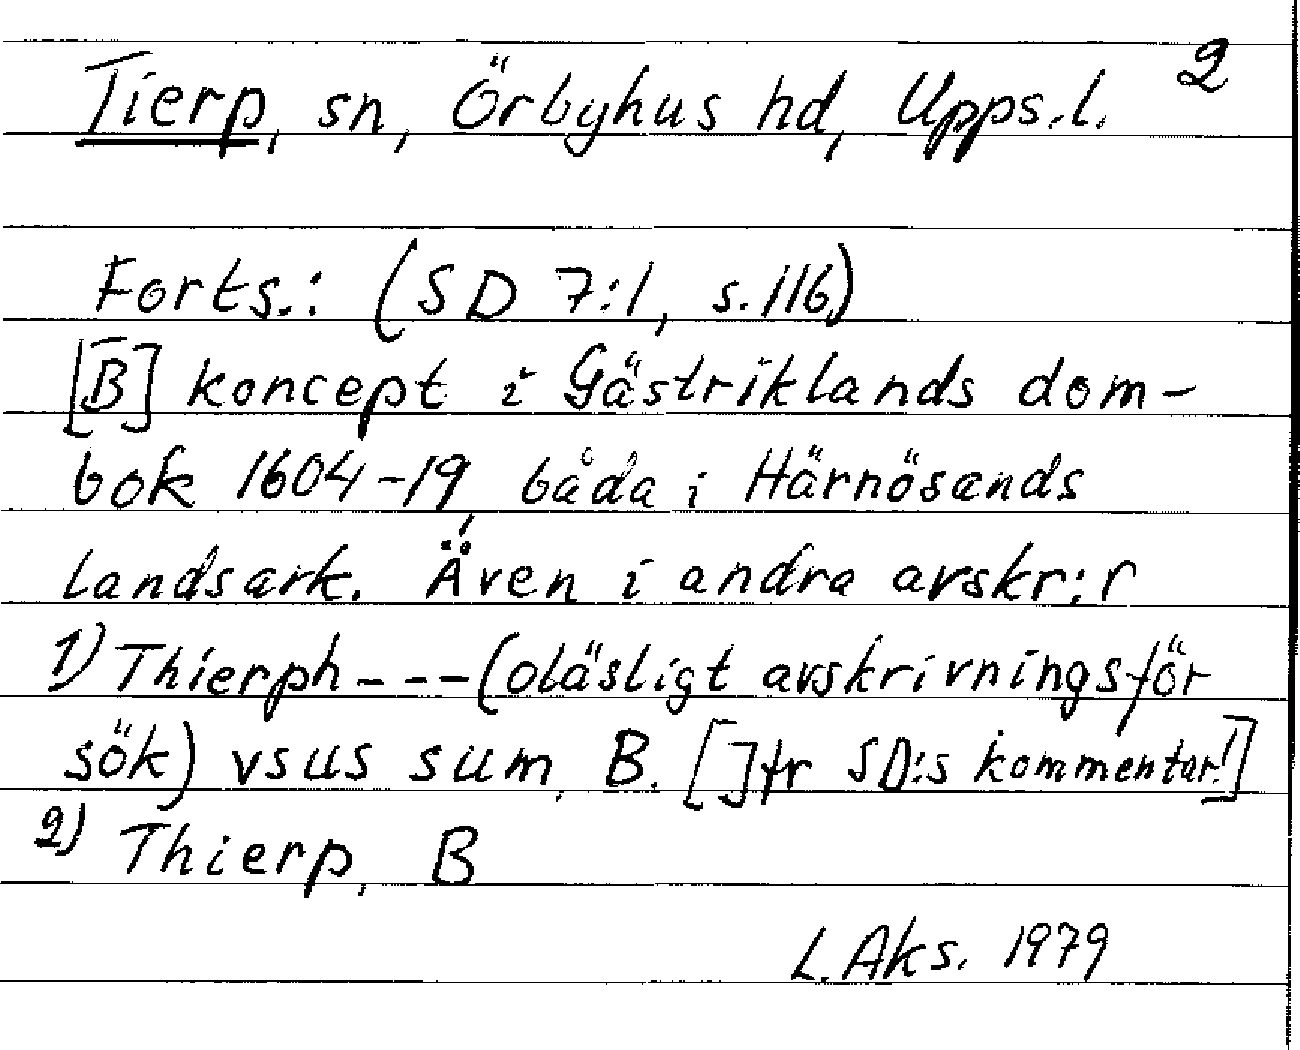 Tierp, sn, Örbyhus hd, Upps.l. 2
Forts.: (SD 7:1, s.116)
[B] koncept i Gästriklands dom-
bok 1604-19, båda i Härnösands
Landsark. Även i andra avskr:r
1) Thierph---(oläsligt avskrivningsför
sök) vsus sum, B. [Jfr SD:s kommentar!]
2) Thierp, B
L. Aks. 1979